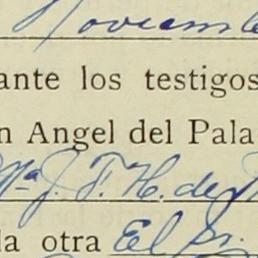 Noviembre
ante los testigos
n Angel del Pala
Mª J. F. H. de
la otra El Sr.